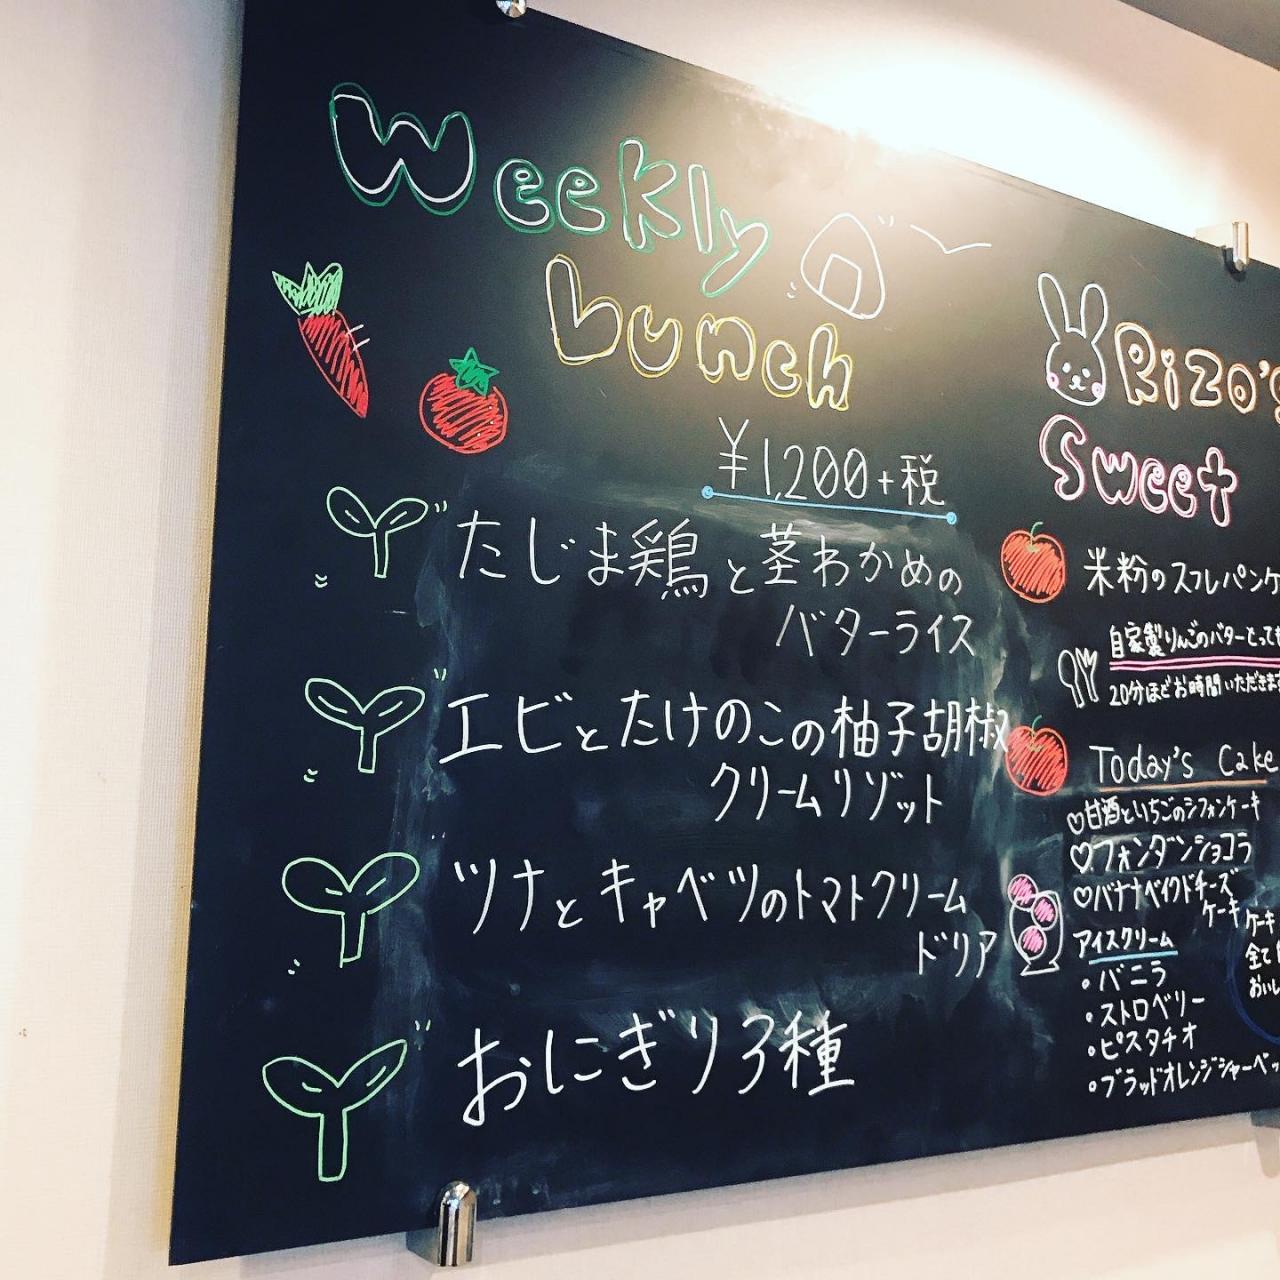 Weekly
Lunch
¥1,200+税
たじま鶏と茎わかめの
バターライス
エビとたけのこの柚子胡椒
クリームリゾット
ツナとキャベツのトマトクリーム
ドリア
おにぎり3種
Rizo's
Sweet
米粉のスフレパンケ
自家製りんごのバターとって
20分ほどお時間いただきます
Today's Cake
♡甘酒といちごのシフォンケーキ
♡フォンダンショコラ
♡バナナベイクドチーズ
ケーキ
アイスクリーム
・バニラ
・ストロベリー
・ピスタチオ
・ブラッドオレンジシャーベッ
ケーキ
全て
おいし